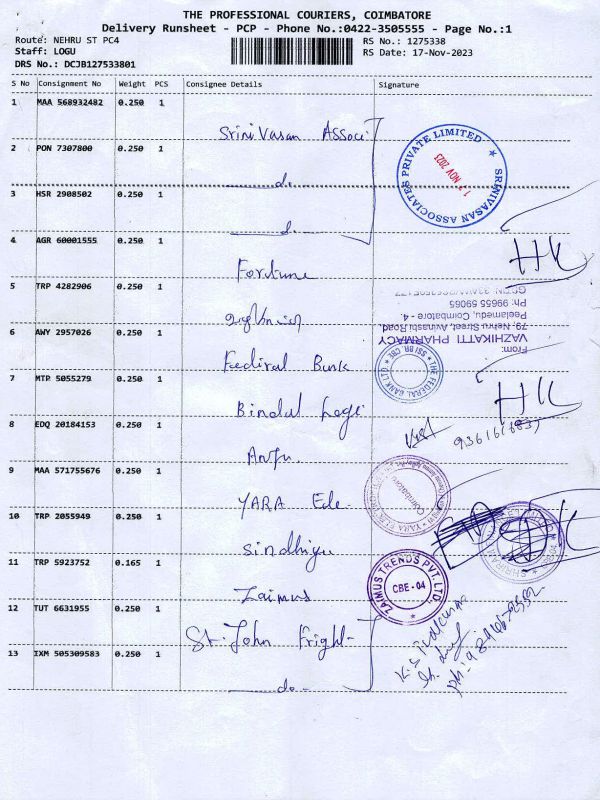 THE PROFESSIONAL COURIERS, COIMBATORE
Delivery Runsheet - PCP - Phone No.:0422-3505555 - Page No.:1
Route: NEHRU ST PC4
RS No.: 1275338
Staff: LOGU
RS Date: 17-Nov-2023
DRS No.: DCJB127533801
S No Consignment No Weight PCS Consignee Details Signature
1 MAA 568932482 0.250 1
Srinivasan Associ
2 PON 7307800 0.250 1
do
SRINIVASAN ASSOCIATES PRIVATE LIMITED
17 NOV 2023
3 HSR 2908502 0.250 1
d.
4 AGR 60001555 0.250 1
Fortune
HK
5 TRP 4282906 0.250 1
From:
VAZHIKATTI PHARMACY
79, Nehru Street, Avinashi Road,
Peelamedu, Coimbatore - 4
Ph: 99655 59065
6 AWY 2957026 0.250 1
Fediral Bunk
THE FEDERAL BANK LTD. SSI BR. CBE
7 MTP 5055279 0.250 1
Bindal Logi
HK
8 EDQ 20184153 0.250 1
9 MAA 571755676 0.250 1
YARA Ede
Coimbatore
10 TRP 2055949 0.250 1
Sindhiyu
11 TRP 5923752 0.165 1
Zaimus
ZAIMUS TRENDS PVT. LTD.,
CBE - 04
12 TUT 6631955 0.250 1
St. John Fright
13 IXM 505309583 0.250 1
do